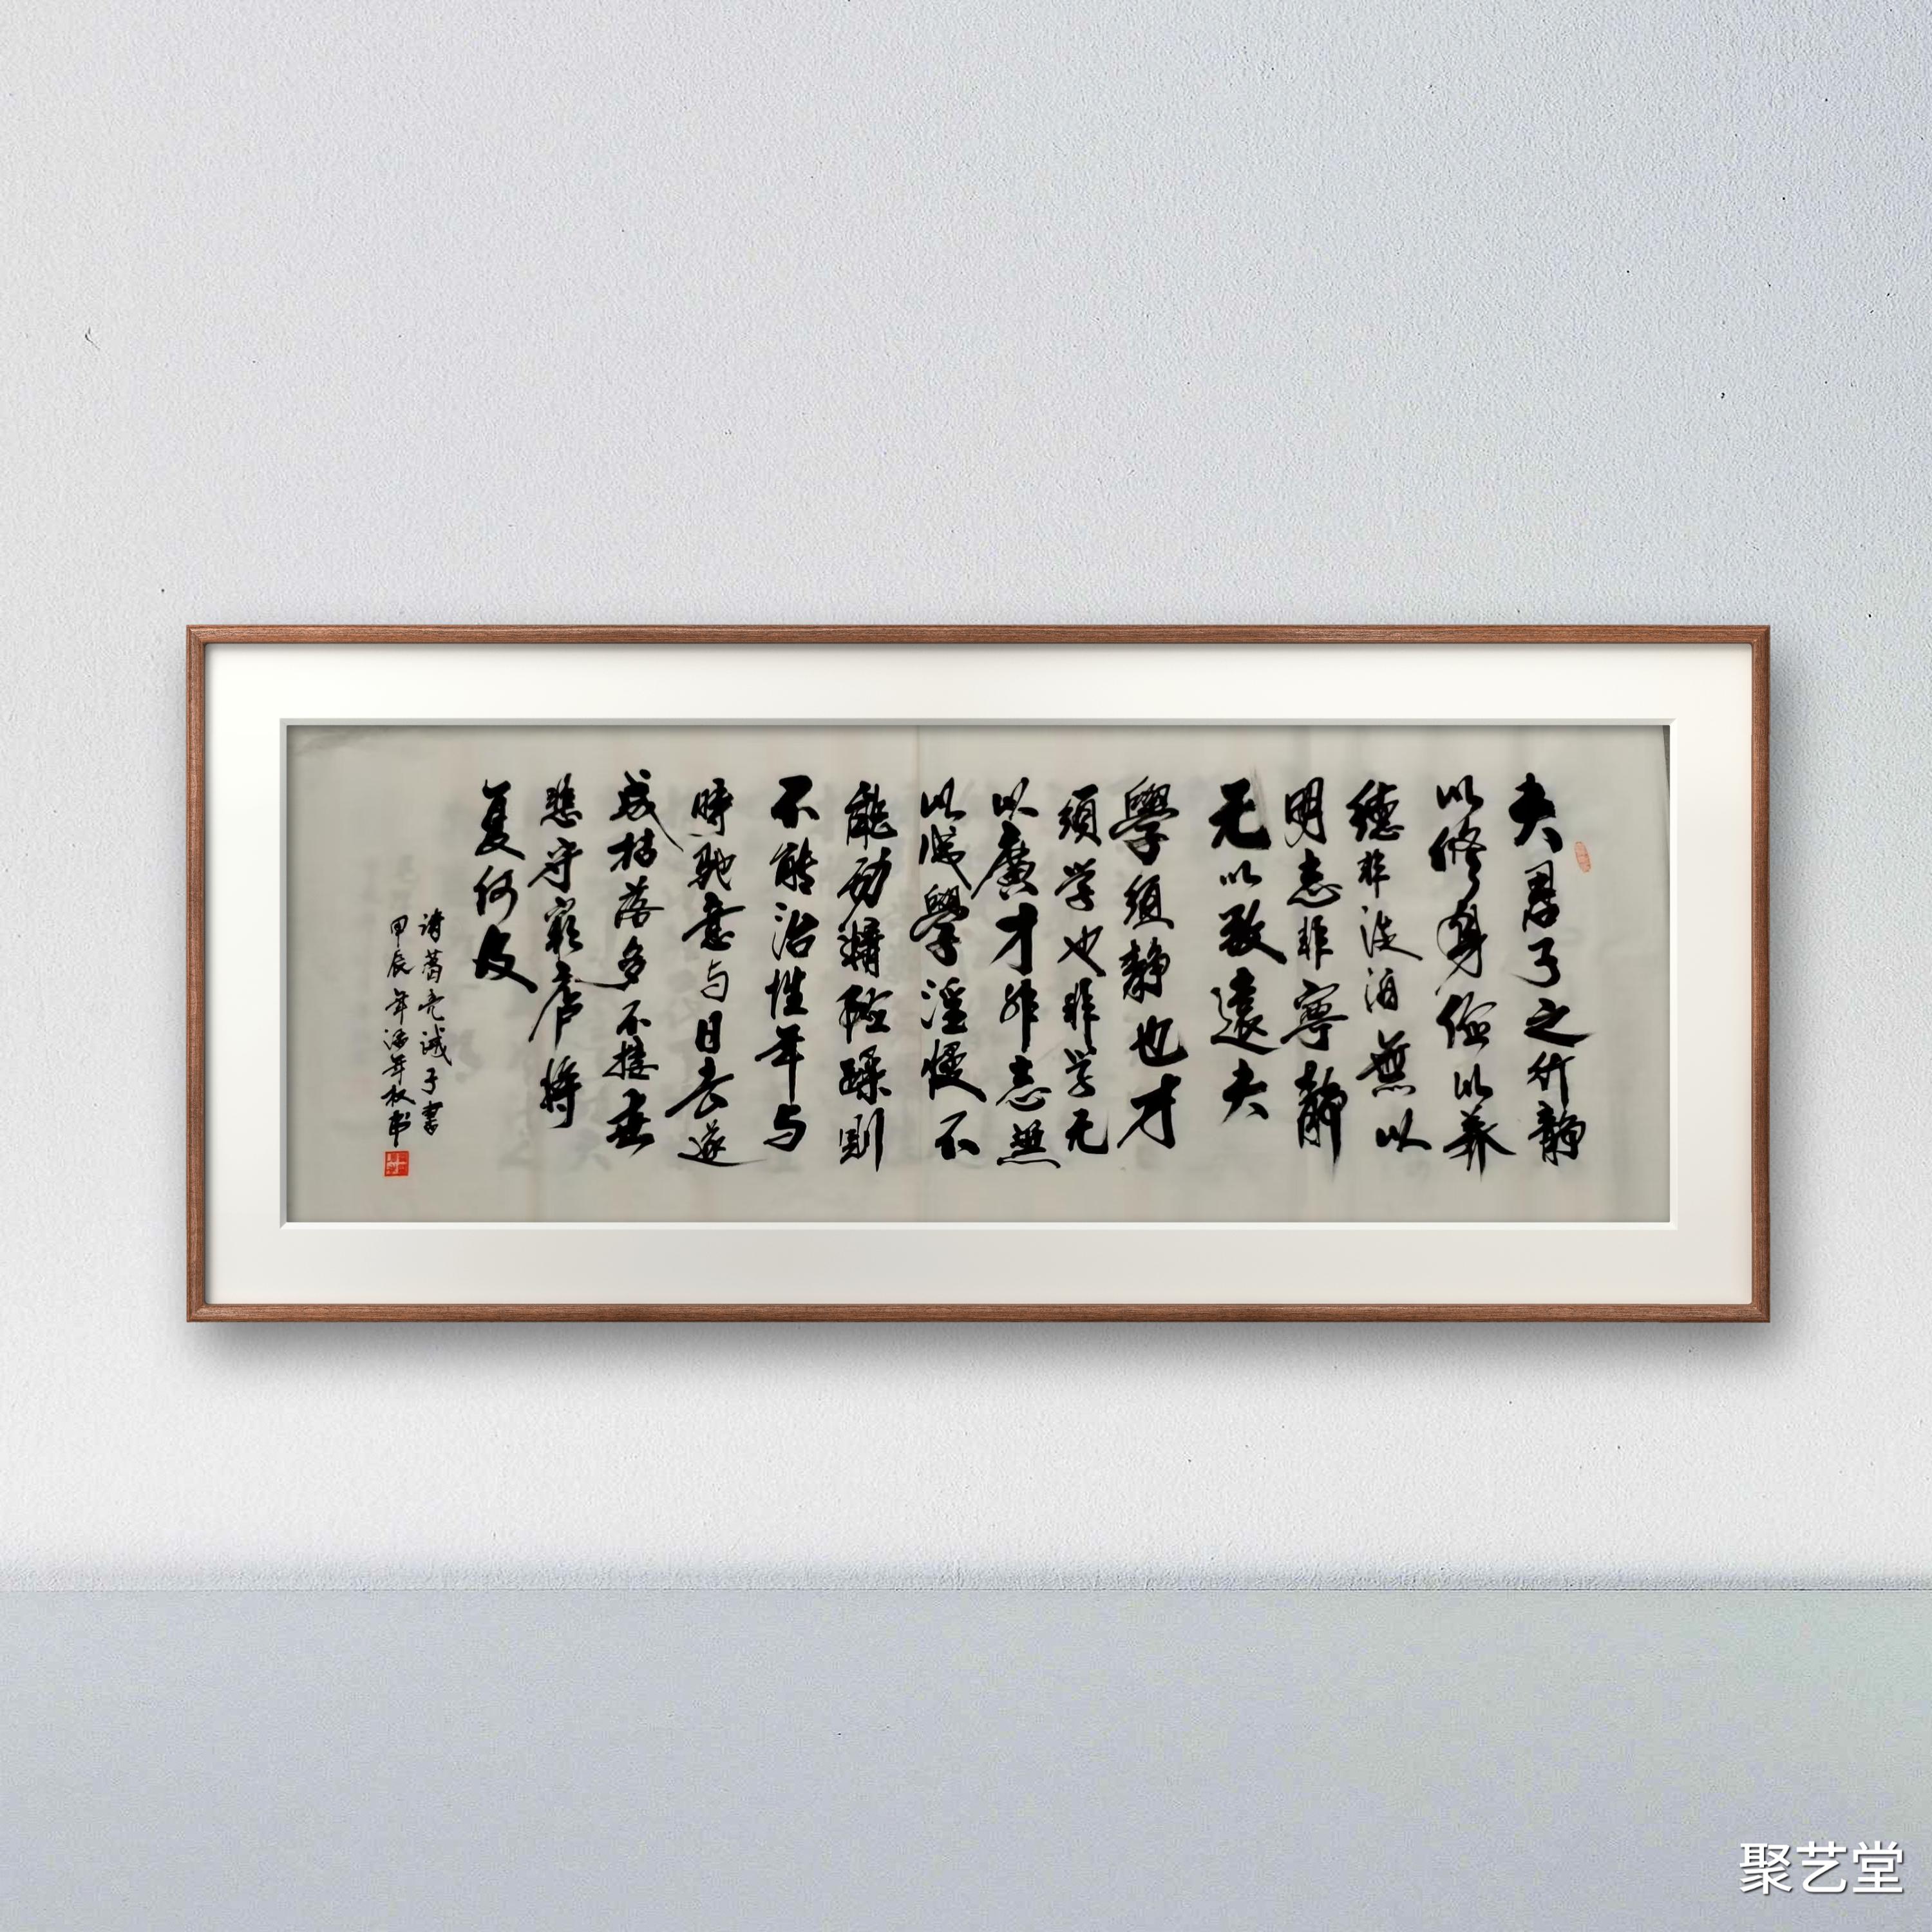 夫君子之行静
以修身俭以养
德非淡泊無以
明志非寧静
无以致遠夫
學須静也才
須学也非学无
以廣才非志無
以成學淫慢不
能励精险躁則
不能治性年与
時馳意与日去遂
成枯落多不接世
悲守穷庐将
复何及
诸葛亮诫子書
甲辰年年权书
聚艺堂